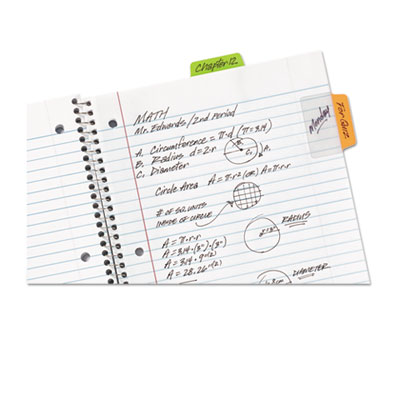 Chapter 12
For Quiz
Monday
MATH
Mr. Edwards / 2nd Period
A. Circumference = π·d (π = 3.14)
B. Radius d = 2·r
C. Diameter
Circle Area A = π·r² (OR) A = π·r·r
# OF SQ. UNITS
INSIDE OF CIRCLE
RADIUS
A = π·r·r
A = 3.14·(3")·(3")
A = 3.14·9 (in²)
A = 28.26
DIAMETER